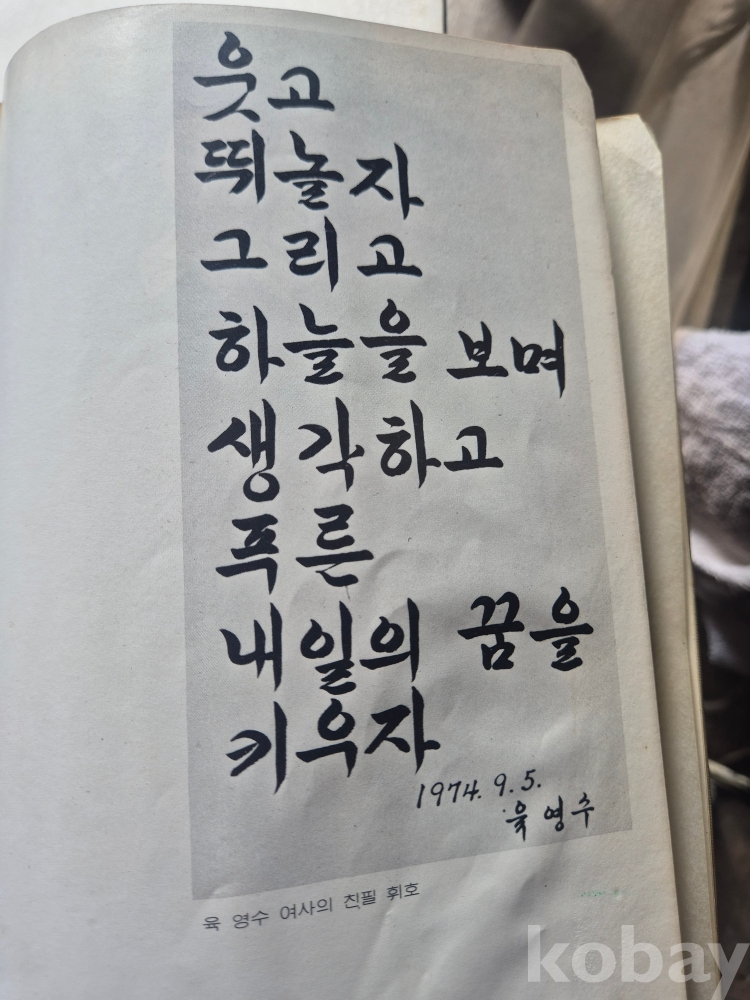 웃고
뛰놀자
그리고
하늘을 보며
생각하고
푸른
내일의 꿈을
키우자
1974. 9. 5.
육영수
육 영수 여사의 친필 휘호
kobay